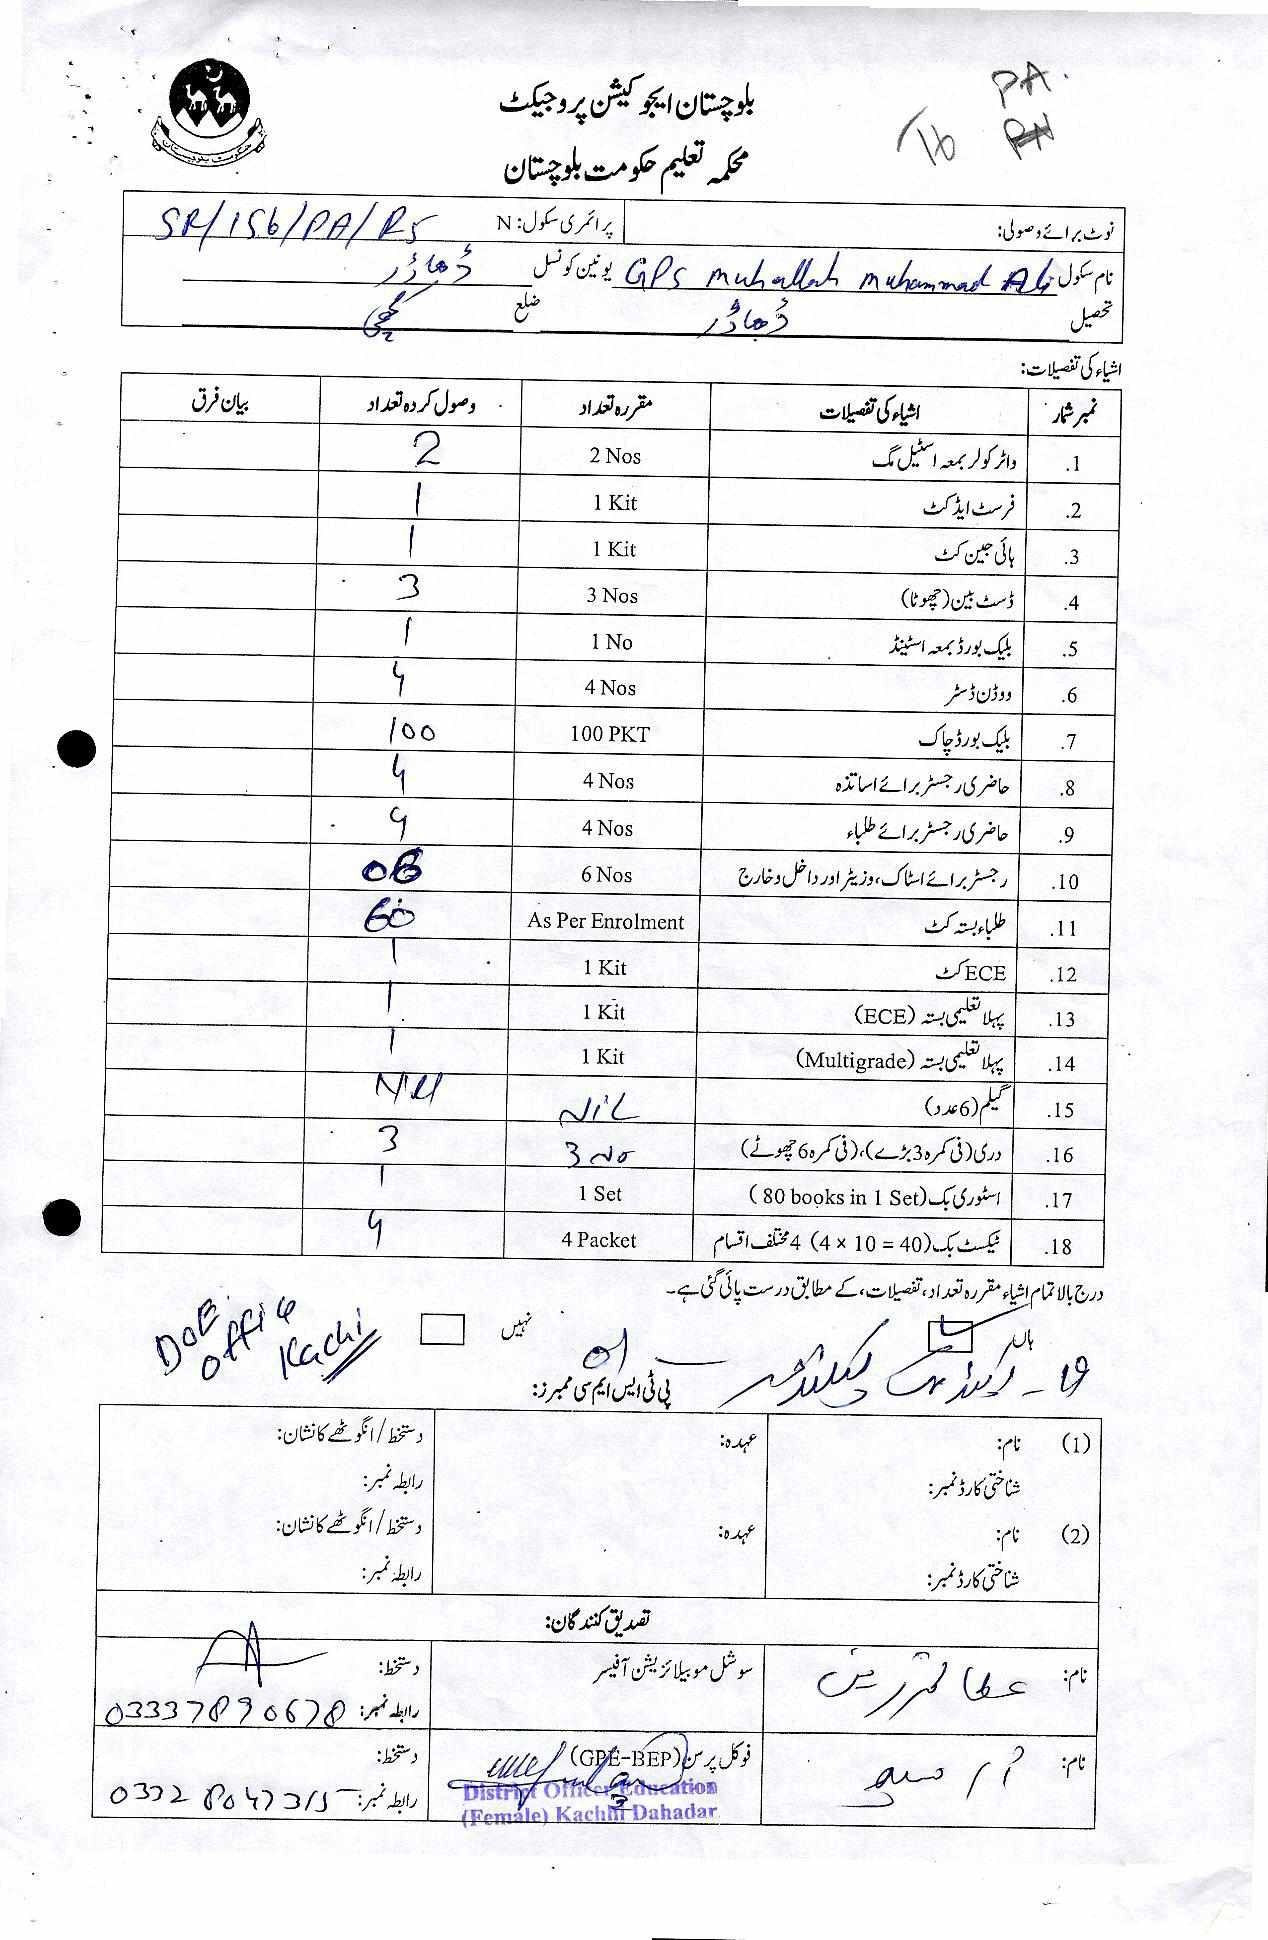 حکومت بلوچستان
بلوچستان ایجوکیشن پروجیکٹ
محکمہ تعلیم حکومت بلوچستان
PA.
16
نوٹ برائے وصولی: پرائمری سکول: N SR/156/PA/R5
نام سکول GPS Muhallah Muhammad Ali یونین کونسل ڈھاڈر
تحصیل ڈھاڈر ضلع کچھی
اشیاء کی تفصیلات:
نمبر شمار اشیاء کی تفصیلات مقررہ تعداد وصول کردہ تعداد بیان فرق
1. واٹر کولر بمعہ اسٹیل مگ 2 Nos 2
2. فرسٹ ایڈ کٹ 1 Kit 1
3. ہائی جین کٹ 1 Kit 1
4. ڈسٹ بین (چھوٹا) 3 Nos 3
5. بلیک بورڈ بمعہ اسٹینڈ 1 No 1
6. ووڈن ڈسٹر 4 Nos 4
7. بلیک بورڈ چاک 100 PKT 100
8. حاضری رجسٹر برائے اساتذہ 4 Nos 4
9. حاضری رجسٹر برائے طلباء 4 Nos 4
10. رجسٹر برائے اسٹاک، وزیٹر اور داخل و خارج 6 Nos 06
11. طلباء بستہ کٹ As Per Enrolment 60
12. ECE کٹ 1 Kit 1
13. پہلا تعلیمی بستہ (ECE) 1 Kit 1
14. پہلا تعلیمی بستہ (Multigrade) 1 Kit 1
15. گیلم (6 عدد) NiL Nill
16. دری (فی کمرہ 3 بڑے)، (فی کمرہ 6 چھوٹے) 3 No 3
17. اسٹوری بک (80 books in 1 Set) 1 Set 1
18. ٹیکسٹ بک (4 × 10 = 40) 4 مختلف اقسام 4 Packet 4
درج بالا تمام اشیاء مقررہ تعداد، تفصیلات، کے مطابق درست پائی گئی ہے۔
ہاں نہیں
DOE Office Kachi
01
پی ٹی ایس ایم سی ممبرز:
(1) نام: عہدہ: دستخط/انگوٹھے کا نشان:
شناختی کارڈ نمبر: رابطہ نمبر:
(2) نام: عہدہ: دستخط/انگوٹھے کا نشان:
شناختی کارڈ نمبر: رابطہ نمبر:
تصدیق کنندگان:
نام: سوشل موبیلائزیشن آفیسر دستخط:
رابطہ نمبر: 03337890678
نام: فوکل پرسن (GPE-BEP) دستخط:
رابطہ نمبر: 0332 8047315
District Officer Education
(Female) Kachhi Dahadar